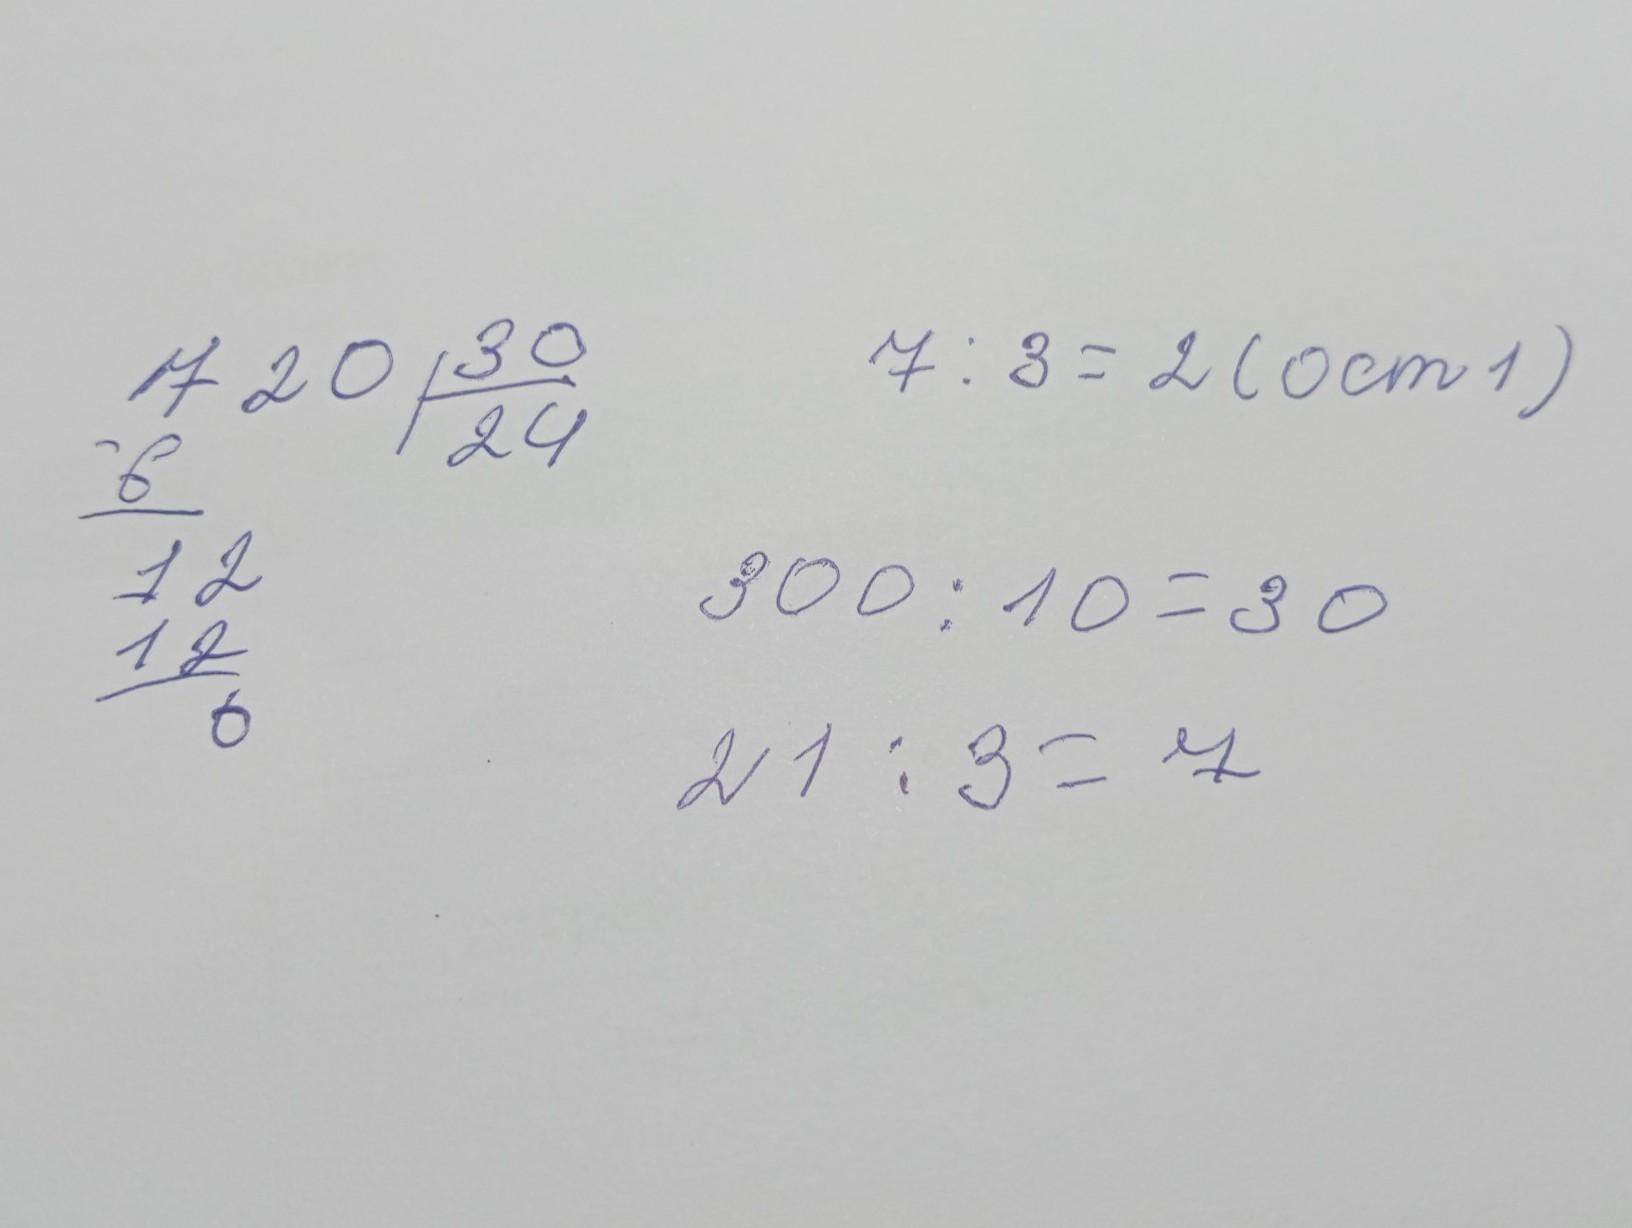 720 30
24
-6
12
12
0
7:3=2(ост1)
300:10=30
21:3=7